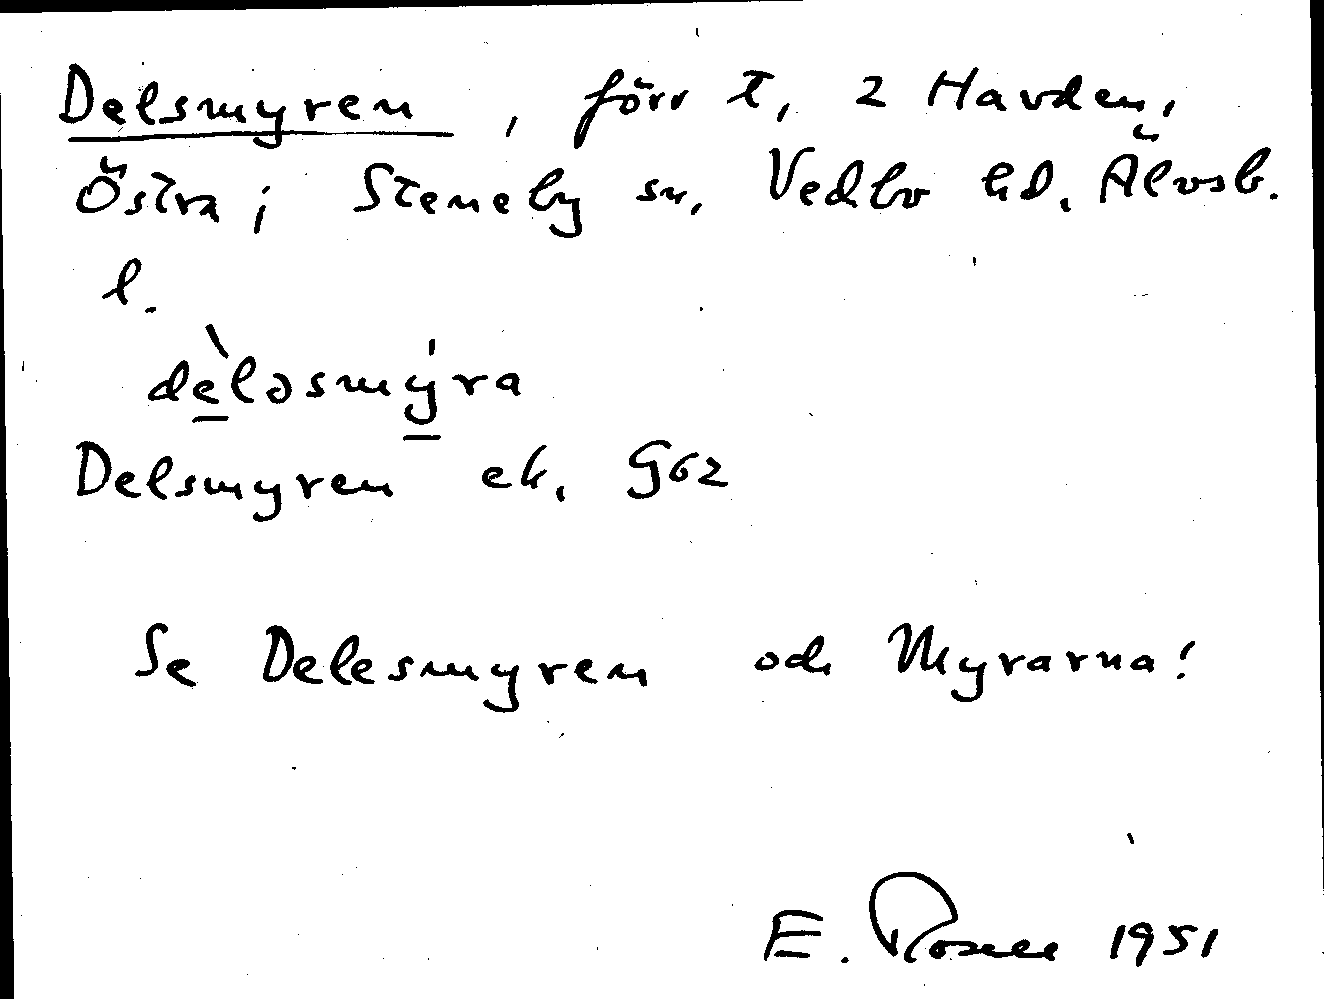 Delsmyren, förr t, 2 Havden,
Östra i Steneby sn, Vedbo hd. Älvsb.
l.
dèləsmy̍ra
Delsmyren ek. G62
Se Delesmyren och Myrarna!
E. 1951